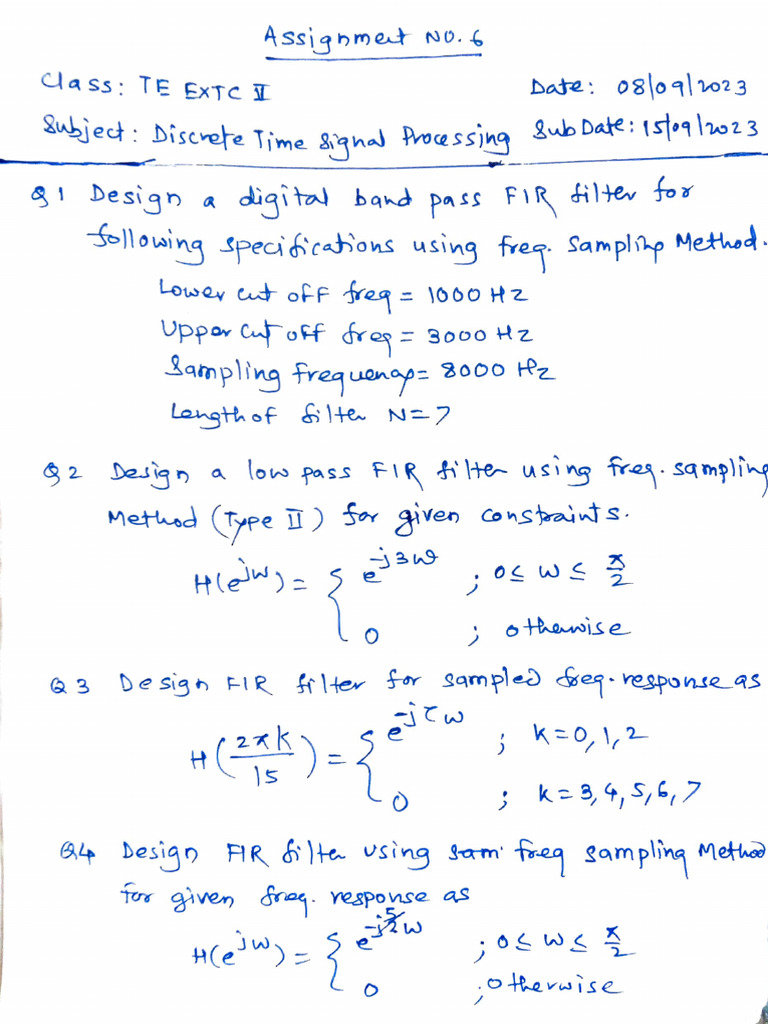 Assignment NO. 6
Class: TE EXTC II
Date: 08/09/2023
Subject: Discrete Time Signal Processing
Sub Date: 15/09/2023
Q1 Design a digital band pass FIR filter for
following specifications using freq. Sampling Method.
Lower cut off freq = 1000 HZ
Upper cut off freq = 3000 HZ
Sampling frequency = 8000 HZ
Length of filter N=7
Q2 Design a low pass FIR filter using freq. sampling
Method (Type II) for given constraints.
H(e^{jω}) = { e^{-j3ω} ; 0 ≤ ω ≤ π/2
0 ; otherwise
Q3 Design FIR filter for sampled freq. response as
H(2πk/15) = { e^{-jτω} ; k=0,1,2
0 ; k=3,4,5,6,7
Q4 Design FIR filter using sam freq sampling Method
for given freq. response as
H(e^{jω}) = { e^{-j5/2ω} ; 0 ≤ ω ≤ π/2
0 ; otherwise